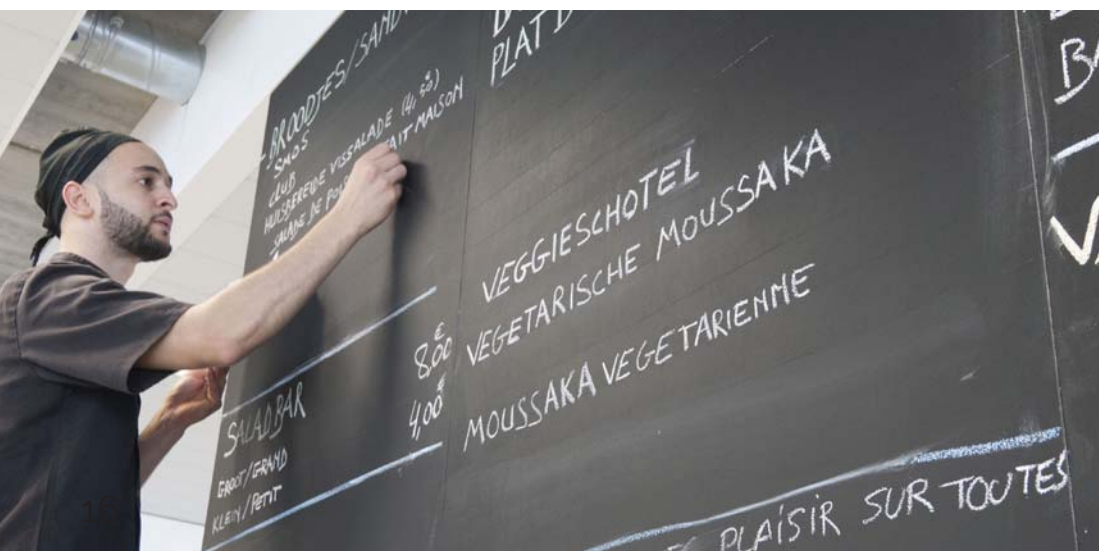 - BROODJES/SAND
SMOS
CLUB
HUISBEREIDE VISSALADE (4,50)
SALADE DE FAIT MAISON
8.00 €
4,00 €
SALADBAR
GROOT/GRAND
KLEIN/PETIT
PLAT D
VEGGIESCHOTEL
VEGETARISCHE MOUSSAKA
MOUSSAKA VEGETARIENNE
PLAISIR SUR TOUTES
BA
VA